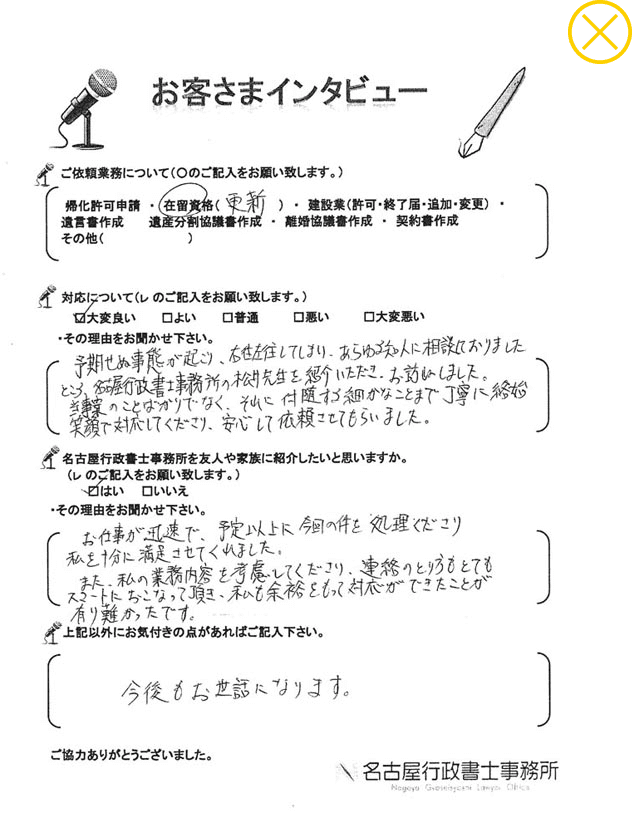 お客さまインタビュー
ご依頼業務について(〇のご記入をお願い致します。)
帰化許可申請 ・ 在留資格( 更新 ) ・ 建設業(許可・終了届・追加・変更) ・
遺言書作成 遺産分割協議書作成 ・ 離婚協議書作成 ・ 契約書作成
その他( )
対応について(レ のご記入をお願い致します。)
☑大変良い □よい □普通 □悪い □大変悪い
・その理由をお聞かせ下さい。
予期せぬ事態が起こり、右往左往してしまい、あらゆる知人に相談しておりました
ところ、名古屋行政書士事務所の松井先生を紹介いただき、お訪ねしました。
当事案のことばかりでなく、それに付随する細かなことまで丁寧に終始
笑顔で対応してくださり、安心して依頼させてもらいました。
名古屋行政書士事務所を友人や家族に紹介したいと思いますか。
(レ のご記入をお願い致します。)
☑はい □いいえ
・その理由をお聞かせ下さい。
お仕事が迅速で、予定以上に今回の件を処理くださり
私を十分に満足させてくれました。
また、私の業務内容を考慮してくださり、連絡のとり方もとても
スマートにおこなって頂き、私も余裕をもって対応ができたことが
有り難かったです。
上記以外にお気付きの点があればご記入下さい。
今後もお世話になります。
ご協力ありがとうございました。
名古屋行政書士事務所